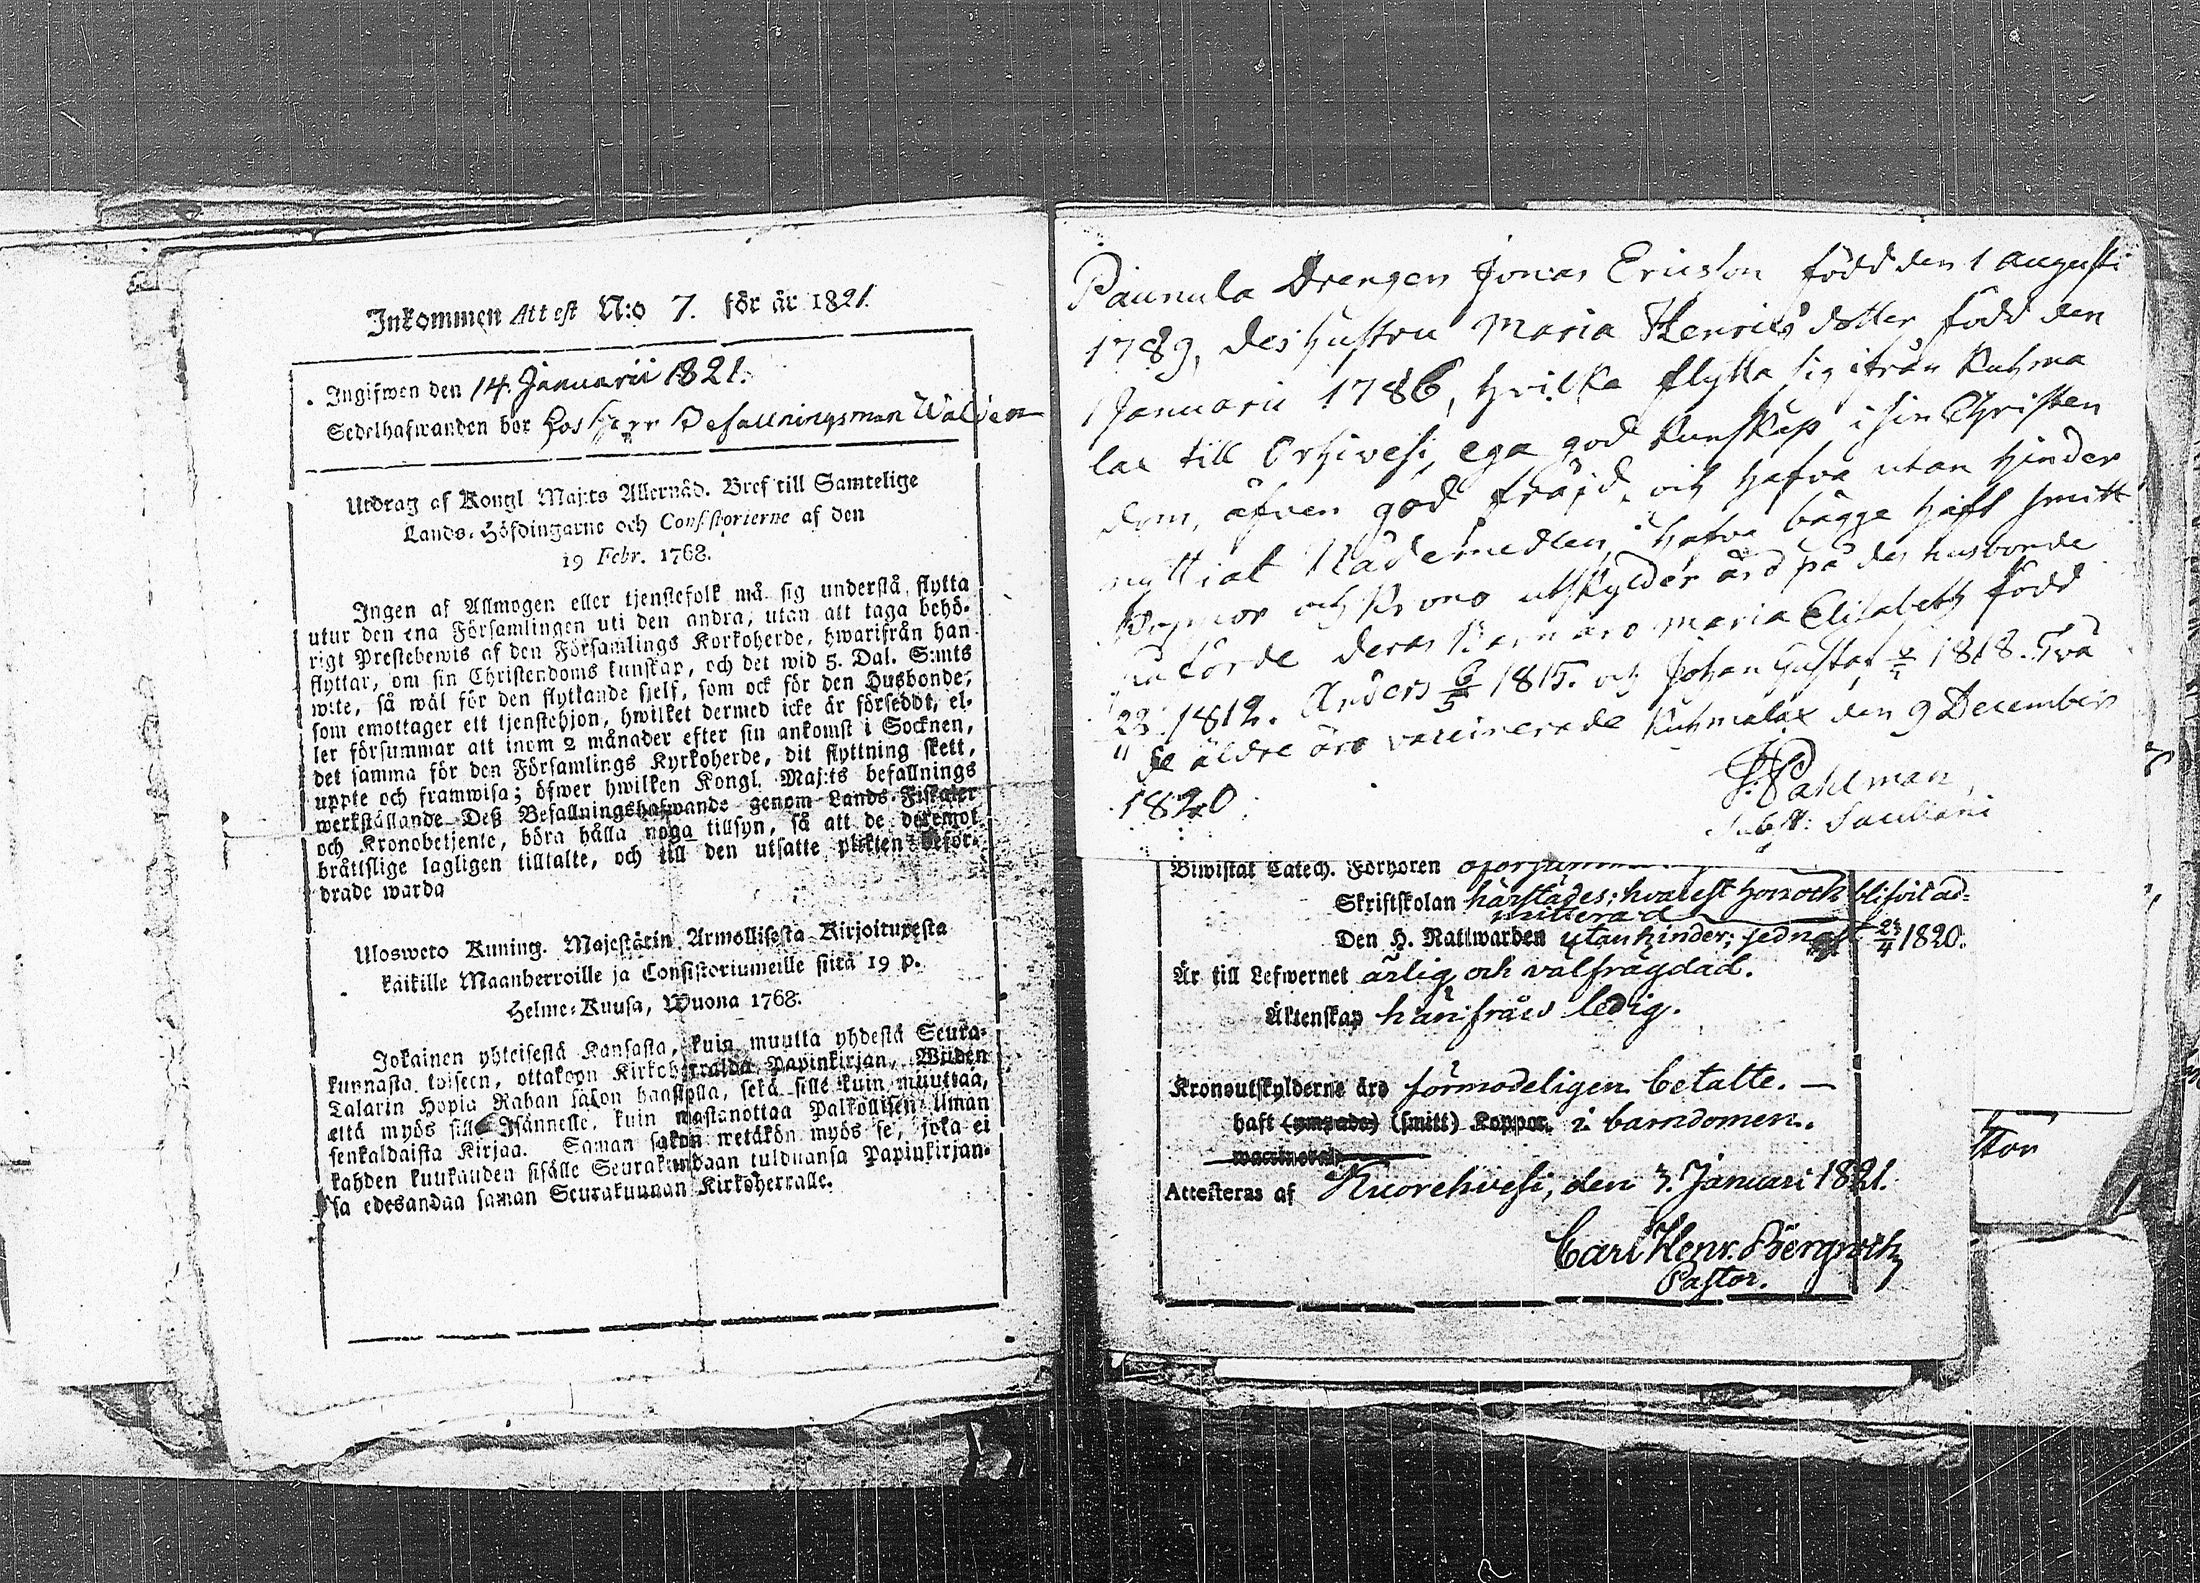 Inkommen Attest N:o 7. för år 1821.
Ingifwen den 14. Januarii 1821.
Sedelhafwanden bor hos Herr Befallningsman Walden
Utdrag af Kongl Maj:ts Allernåd. Bref till Samtelige
Lands-Höfdingarne och Consistorierne af den
19 Febr. 1768.
Ingen af Allmogen eller tjenstefolk må sig understå flytta
utur den ena Församlingen uti den andra, utan att taga behö-
rigt Prestebewis af den Församlings Korkoherde, hwarifrån han
flyttar, om sin Christendoms kunskap, och det wid 5. Dal. S:mts
wite, så wäl för den flyttande sjelf, som ock för den Husbonde,
som emottager ett tjenstehjon, hwilket dermed icke är förseddt, el-
ler försummar att inom 2 månader efter sin ankomst i Socknen,
det samma för den Församlings Kyrkoherde, dit flyttning skett,
uppte och framwisa; öfwer hwilken Kongl. Maj:ts befallnings
werkställande Deß Befallningshafwande genom Lands-Fiskaler
och Kronobetjente, böra hålla noga tillsyn, så att de deremot
bråttslige lagligen tilltalte, och till den utsatte plikten befor-
drade warda
Ulosweto Kuning. Majestätin Armollisesta Kirjoituxesta
kaikille Maanherroille ja Consistoriumeille siitä 19 p.
Helme-Kuusa, Wuona 1768.
Jokainen yhteisestä Kansasta, kuin muutta yhdestä Seura-
kunnasta toiseen, ottakoon Kirkoherralda Papinkirjan, Wiiden
Talarin Hopia Rahan sakon haastolla, sekä sille kuin muuttaa,
että myös sille Isännelle, kuin wastanottaa Palkollisen ilman
senkaldaista Kirjaa. Saman sakon wetäkön myös se, joka ei
kahden kuukauden sisälle Seurakundaan tulduansa Papinkirjan-
sa edesandaa saman Seurakunnan Kirkoherralle.
Päunula Drengen Jonas Ericsson född den 1 Augusti
1789, des hustru Maria Henricsdotter född den
1 Januarii 1786, hvilka flytta sig ifrån Kuhma
lax till Orhivesi, ega god kunskap i sin Christen
dom, äfven god fräjd, och hafva utan hinder
nyttjat Nådemedlen, hafva bägge haft smitt
Koppor och Krono utskylder äro på des husbonde
påförde deras Barn äro Maria Elisabeth född
23 1812. Anders 6/5 1815. och Johan Gustaf 1818. Två
de äldre äro vaccinerade Kuhmalax den 9 December
1820.
Pahlman
Biwistat Catech. Förhören
Skriftskolan härstädes; hvarest hon och blifvit ad-
mitterad
Den H. Nattwarden utan hinder; sednast 23/4 1820.
Är till Lefwernet ärlig och välfrägdad.
Äktenskap härifrån ledig.
Kronoutskylderne äro förmodeligen betalte. —
haft (ympade) (smitt) Koppor i barndomen.
Attesteras af Kuorehvesi, den 3. Januari 1821.
Carl Henr. Bergroth
Pastor.